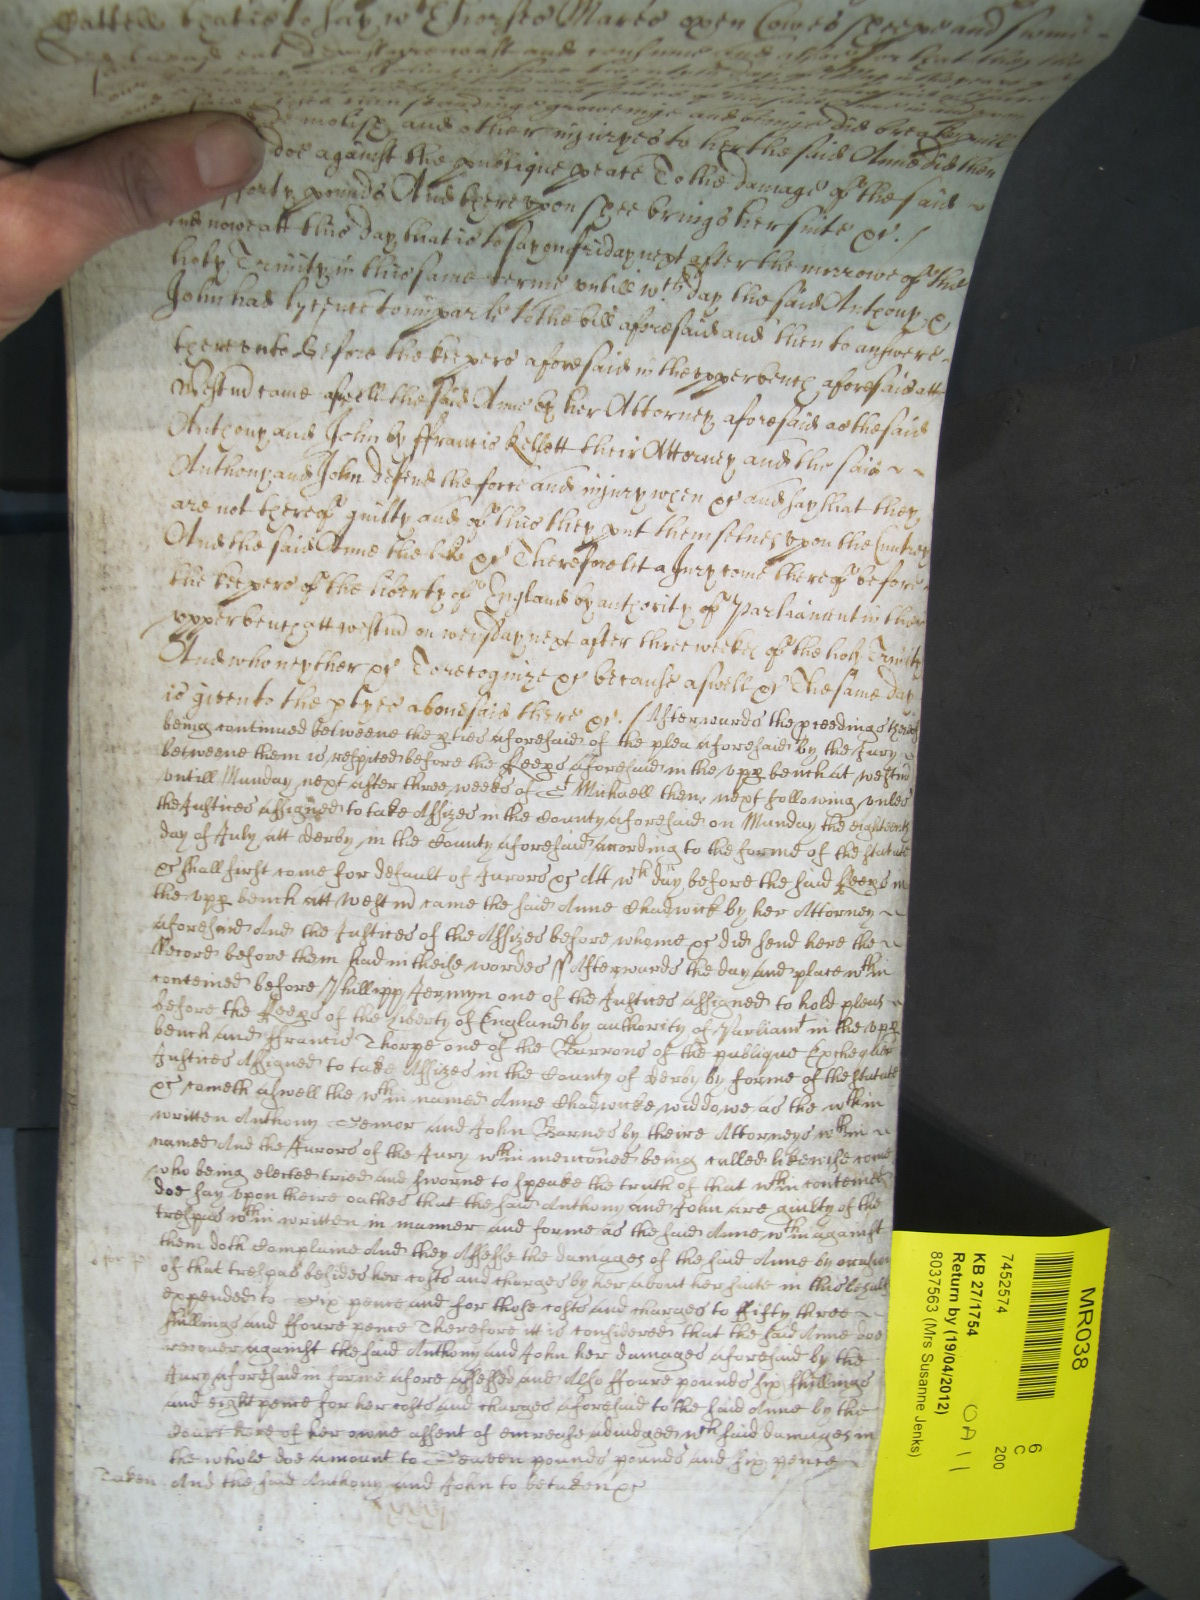 Cattell that is to say wth horses Mares oxen Cowes sheepe and swine
and other injuryes to her the said Anne did then
doe against the publique peace To the damage of the said
forty pounds And thereupon shee brings her suite &c /
And nowe att this day that is to say on friday next after the morrowe of the
holy Trinity in this same terme untill wch day the said Anthony &
John had lycence to imparle to the bill aforesaid and then to answere
thereunto before the keepers aforesaid in the upperbench aforesaid att
Westmr came aswell the said Anne by her Attorney aforesaid as the said
Anthony and John by ffrancis Kellett their Attorney and the said
Anthony and John defend the force and injury when &c and say that they
are not thereof guilty and of this they put themselves upon the Cuntrey
And the said Anne the like &c Therefore let a Jury come thereof before
the keepers of the liberty of England by authority of Parliament in the
upperbench att Westmr on wensday next after three weekes of the holy Trinity
And who neyther &c To recognize &c because aswell &c The same day
is given to the ptyes abovesaid there &c / Afterwards the pceedings thereof
being continued betweene the pties aforesaid of the plea aforesaid by the Jury
betweene them is respited before the Keeps aforesaid in the upp bench at westmr
untill Munday next after three weeks of St Michaell then next following unles
the Justices assigned to take Assizes in the County aforesaid on Munday the eighteenth
day of July att Derby in the County aforesaid according to the forme of the statute
&c shall first come for default of Jurors &c Att wch day before the said Keeps in
the upp bench att westmr came the said Anne Chadwick by her Attorney
aforesaid And the Justices of the Assizes before whome &c did send here the
Record before them had in theise wordes ss Afterwards the day and place wthin
conteined before Phillipp Jermyn one of the Justices assigned to hold pleas
before the Keeps of the liberty of England by authority of Parliamt in the upp
bench and ffrancis Thorpe one of the Barrons of the publique Exchequer
Justices Assigned to take Assizes in the County of Derby by forme of the statute
&c cometh aswell the wthin named Anne Chadwicke widdowe as the wthin
written Anthony and John Barnes by theire Attorneys wthin
named And the Jurors of the Jury wthin menconed being called likewise come
who being elected tried and sworne to speake the truth of that wthin conteined
doe say upon theire oathes that the said Anthony and John are guilty of the
trespas wthin written in manner and forme as the said Anne wthin against
them doth complaine And they Assesse the damages of the said Anne by occasion
of that trespas besides her costs and charges by her about her suite in this behalfe
expended to Six pence and for those costs and charges to ffifty three
shillings and ffoure pence Therefore itt is considered that the said Anne doe
recover against the said Anthony and John her damages aforesaid by the
Jury aforesaid in forme afore assessed and Also ffoure pounds six shillings
and eight pence for her costs and charges aforesaid to the said Anne by the
Court here of her owne assent of encrease adiudged wch said damages in
the whole doe amount to Seaven pounds pounds and six pence
Taken And the said Anthony and John to be taken &c
MR038
7452574
KB 27/1754
Return by (19/04/2012)
8037563 (Mrs Susanne Jenks)
6
C
200